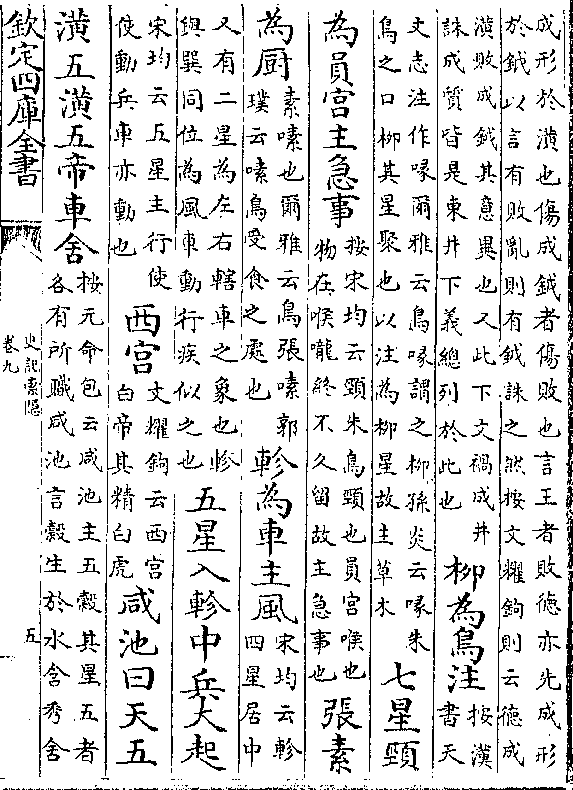 成形於潢也傷成鉞者傷敗也言王者敗徳亦先成形
於鉞以言有敗亂則有鉞誅之然按文耀鉤則云徳成
潢敗成鉞其意異也又此下文禍成井
誅成質皆是東井下義總列於此也
柳為鳥注
按漢
書天
文志注作喙爾雅云鳥喙謂之柳孫炎云喙朱
鳥之口柳其星聚也以注為柳星故主草木
七星頸
為員宫主急事
按宋均云頸朱鳥頸也員宫喉也
物在喉嚨終不久留故主急事也
張素
為厨
素嗉也爾雅云鳥張嗉郭
璞云嗉鳥受食之處也
軫為車主風
宋均云軫
四星居中
又有二星為左右轄車之象也軫
與巽同位為風車動行疾似之也
五星入軫中兵大起
宋均云五星主行使
使動兵車亦動也
西宫
文耀鉤云西宫
白帝其精白虎
咸池曰天五
潢五潢五帝車舍
按元命包云咸池主五穀其星五者
各有所職咸池言穀生於水含秀含
欽定四庫全書
史記索隱
卷九
五